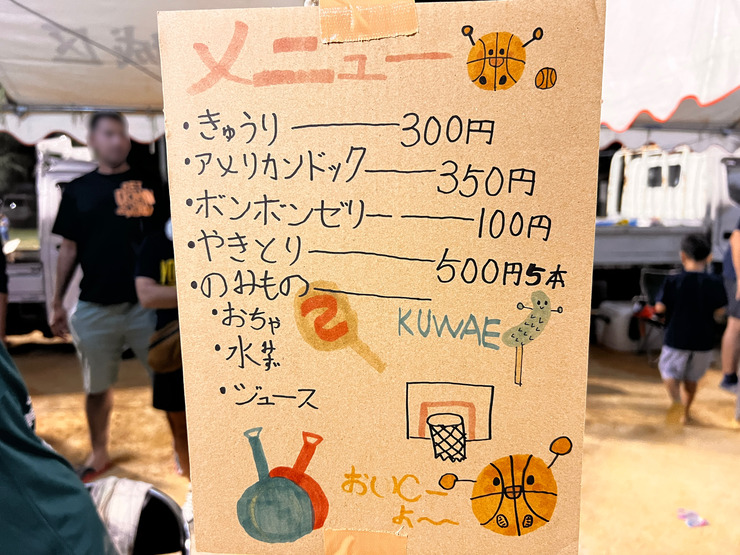 メニュー
・きゅうり ――― 300円
・アメリカンドック ―― 350円
・ボンボンゼリー ―― 100円
・やきとり ――― 500円5本
・のみもの ―――
・おちゃ
・水
みず
・ジュース
KUWAE
おいC〜
よ〜〜
城区